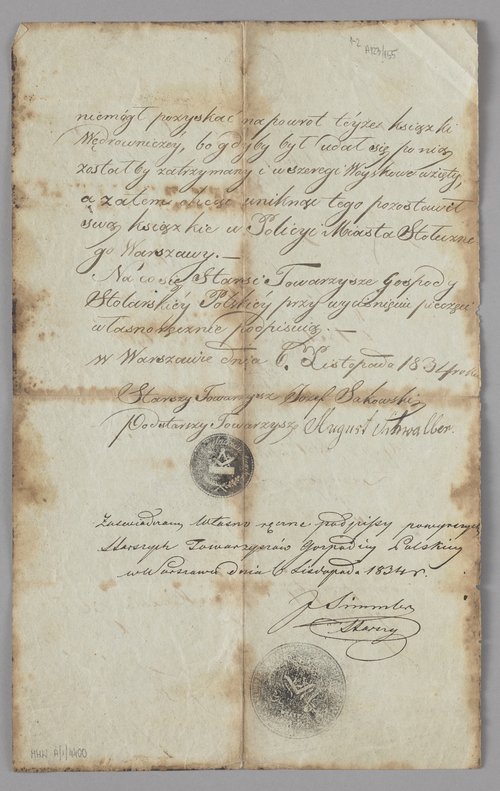 A 123/455
niemógł pozyskać na powrót téyże ksiązki
Wędrowniczéy, bo gdyby był udał się po nią
zostałby zatrzymany i w szeregi Woyskowe wzięty,
a zatem chcąc uniknąć tego pozostawił
swą ksiązkie w Policyi Miasta Stołeczne
go Warszawy. —
Na co się Starsi Towarzysze Gospody
Stolarskiéy Polskiéy przy wyciśnięciu pieczęci
własnoręcznie podpisują. —
w Warszawie dnia 6. Listopada 1834 roku
Starszy Towarzysz Józef Sakowski
Podstarszy Towarzysz August Schwalber.
Zaświadczam własno ręczne podpisy powyższych
Starszych Towarzyszów Gospody Polskiey
w Warszawie dnia 6 Listopada 1834 r.
J Simmler
Starszy
MHW A/I/4400